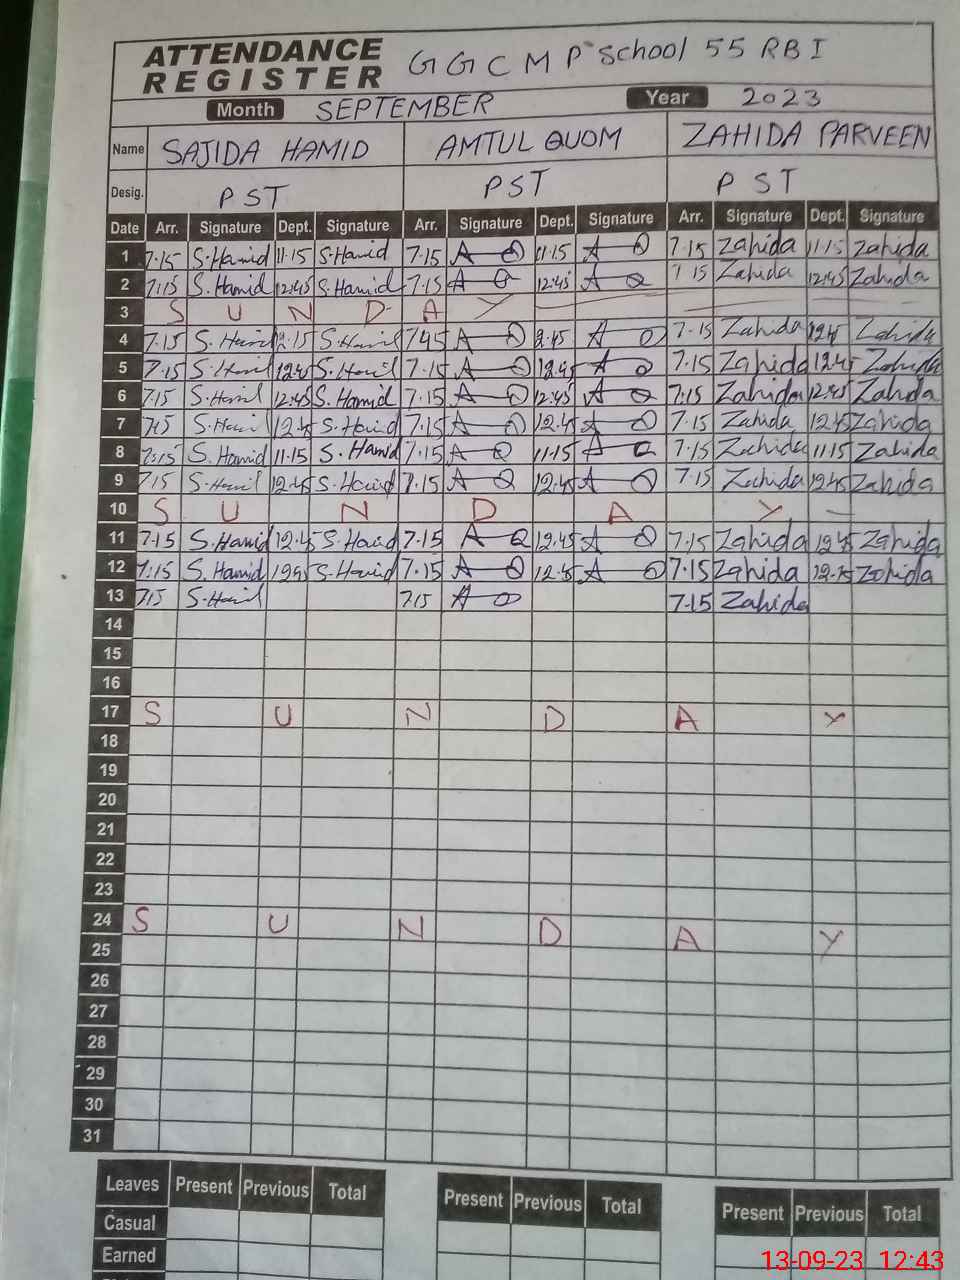 ATTENDANCE REGISTER GGCMP School 55 RBI
Month SEPTEMBER Year 2023
Name SAJIDA HAMID AMTUL QUOM ZAHIDA PARVEEN
Desig. PST PST PST
Date Arr. Signature Dept. Signature Arr. Signature Dept. Signature Arr. Signature Dept. Signature
1 7.15 S.Hamid 11.15 S.Hamid 7.15 A Q 11.15 A Q 7.15 Zahida 11.15 Zahida
2 7.15 S.Hamid 12.45 S.Hamid 7.15 A Q 12.45 A Q 7 15 Zahida 12.45 Zahida
3 S U N D A Y
4 7.15 S.Hamid 2.15 S.Hamid 745 A Q 2.45 A Q 7.15 Zahida Zahida
5 7.15 S.Hamid 12.45 S.Hamid 7.15 A Q 12.45 A Q 7.15 Zahida 12.45 Zahida
6 7.15 S.Hamid 12.45 S.Hamid 7.15 A Q 12.45 A Q 7.15 Zahida 12.45 Zahida
7 7.15 S.Hamid 12.45 S.Hamid 7.15 A Q 12.45 A Q 7.15 Zahida 12.45 Zahida
8 7.15 S.Hamid 11.15 S.Hamid 7.15 A Q 11.15 A Q 7.15 Zahida 11.15 Zahida
9 7.15 S.Hamid 12.45 S.Hamid 7.15 A Q 12.45 A Q 7.15 Zahida 12.45 Zahida
10 S U N D A Y
11 7.15 S.Hamid 12.45 S.Hamid 7.15 A Q 12.45 A Q 7.15 Zahida 12.45 Zahida
12 7.15 S.Hamid S.Hamid 7.15 A Q 12.45 A Q 7.15 Zahida Zahida
13 7.15 S.Hamid 7.15 A Q 7.15 Zahida
14
15
16
17 S U N D A Y
18
19
20
21
22
23
24 S U N D A Y
25
26
27
28
29
30
31
Leaves Present Previous Total Present Previous Total Present Previous Total
Casual
Earned
13-09-23 12:43